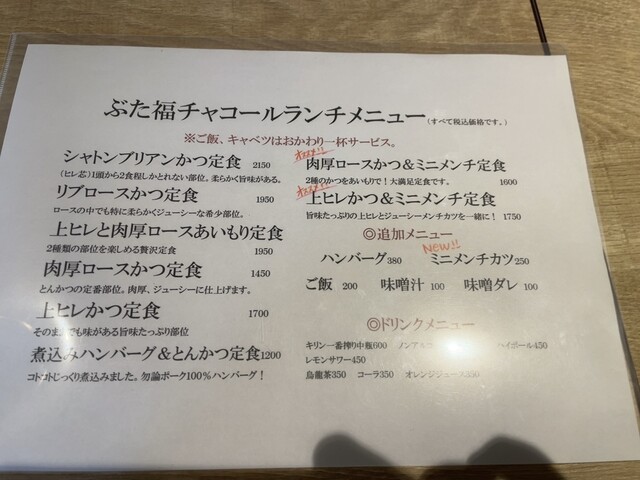 ぶた福チャコールランチメニュー(すべて税込価格です。)
※ご飯、キャベツはおかわり一杯サービス。
シャトンブリアンかつ定食 2150
(ヒレ芯)1頭から2食程しかとれない部位。柔らかく旨味がある。
リブロースかつ定食 1950
ロースの中でも特に柔らかくジューシーな希少部位。
上ヒレと肉厚ロースあいもり定食
2種類の部位を楽しめる贅沢定食 1950
肉厚ロースかつ定食 1450
とんかつの定番部位。肉厚、ジューシーに仕上げます。
上ヒレかつ定食 1700
そのままでも味がある旨味たっぷり部位
煮込みハンバーグ&とんかつ定食1200
コトコトじっくり煮込みました。勿論ポーク100%ハンバーグ!
オススメ!!
肉厚ロースかつ&ミニメンチ定食
2種のかつをあいもりで!大満足定食です。 1600
オススメ!!
上ヒレかつ&ミニメンチ定食
旨味たっぷりの上ヒレとジューシーメンチカツを一緒に! 1750
◎追加メニュー
NEW!!
ハンバーグ380 ミニメンチカツ250
ご飯 200 味噌汁 100 味噌ダレ 100
◎ドリンクメニュー
キリン一番搾り中瓶600 ノンアル ハイボール450
レモンサワー450
烏龍茶350 コーラ350 オレンジジュース350